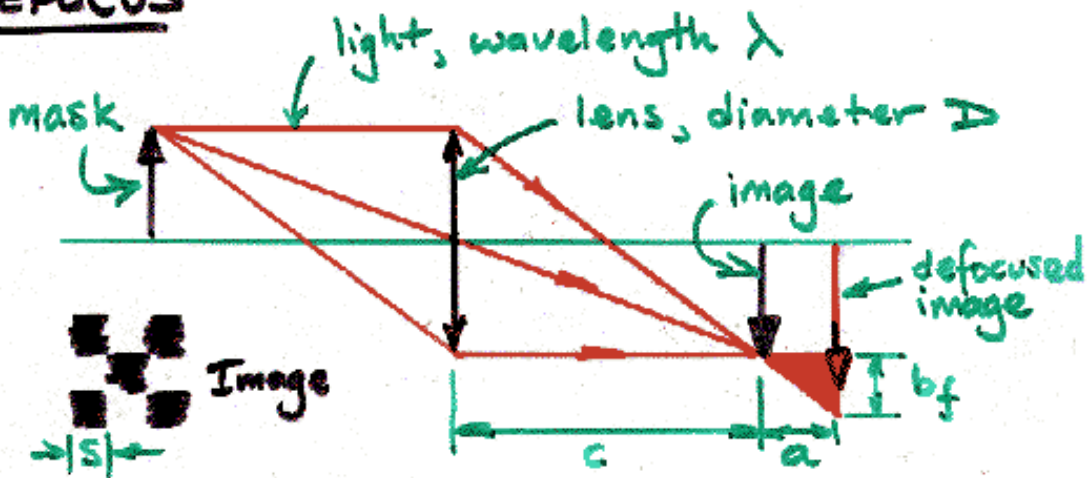 DEFOCUS
light, wavelength λ
mask
lens, diameter D
image
defocused
image
Image
b_f
s
c
a